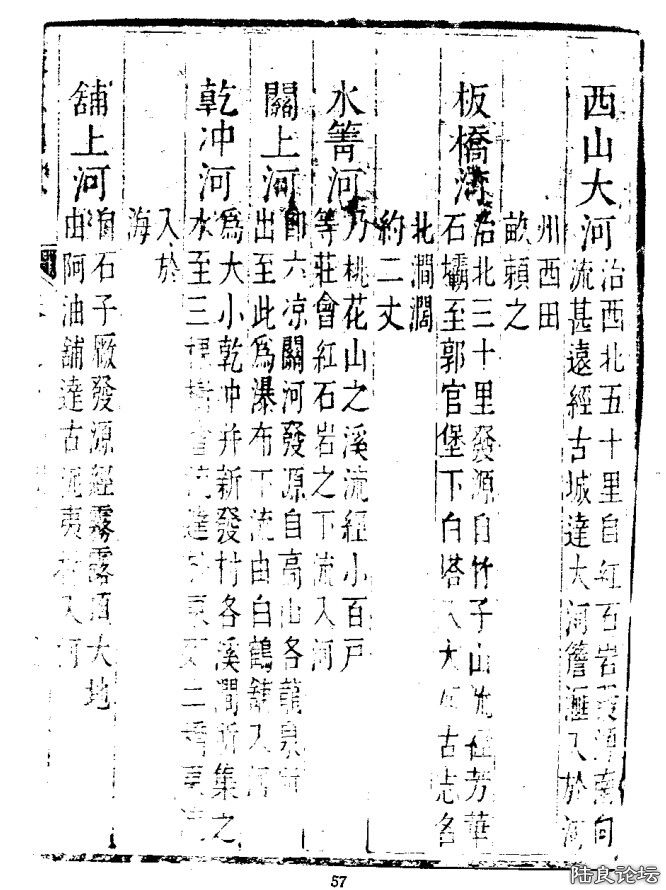 西山大河
治西北五十里自紅石岩發源南向
流甚遠經古城達大河舊匯入於河
州西田
畝頼之
板橋河
治北三十里發源自竹子山流經芳華
石壩至郭官堡下白塔入大河古志名
北澗濶
約二丈
水箐河
乃桃花山之溪流經小百戸
等莊會紅石岩之下流入河
關上河
即六凉關河發源自高山各龍泉
出至此爲瀑布下流由白鶴舖入河
乾冲河
爲大小乾冲并新發村各溪澗所集之
水至三
入於
海
舖上河
石子厰發源經霧露頂大地
由阿油舖達古 夷 入河
57
陆良论坛